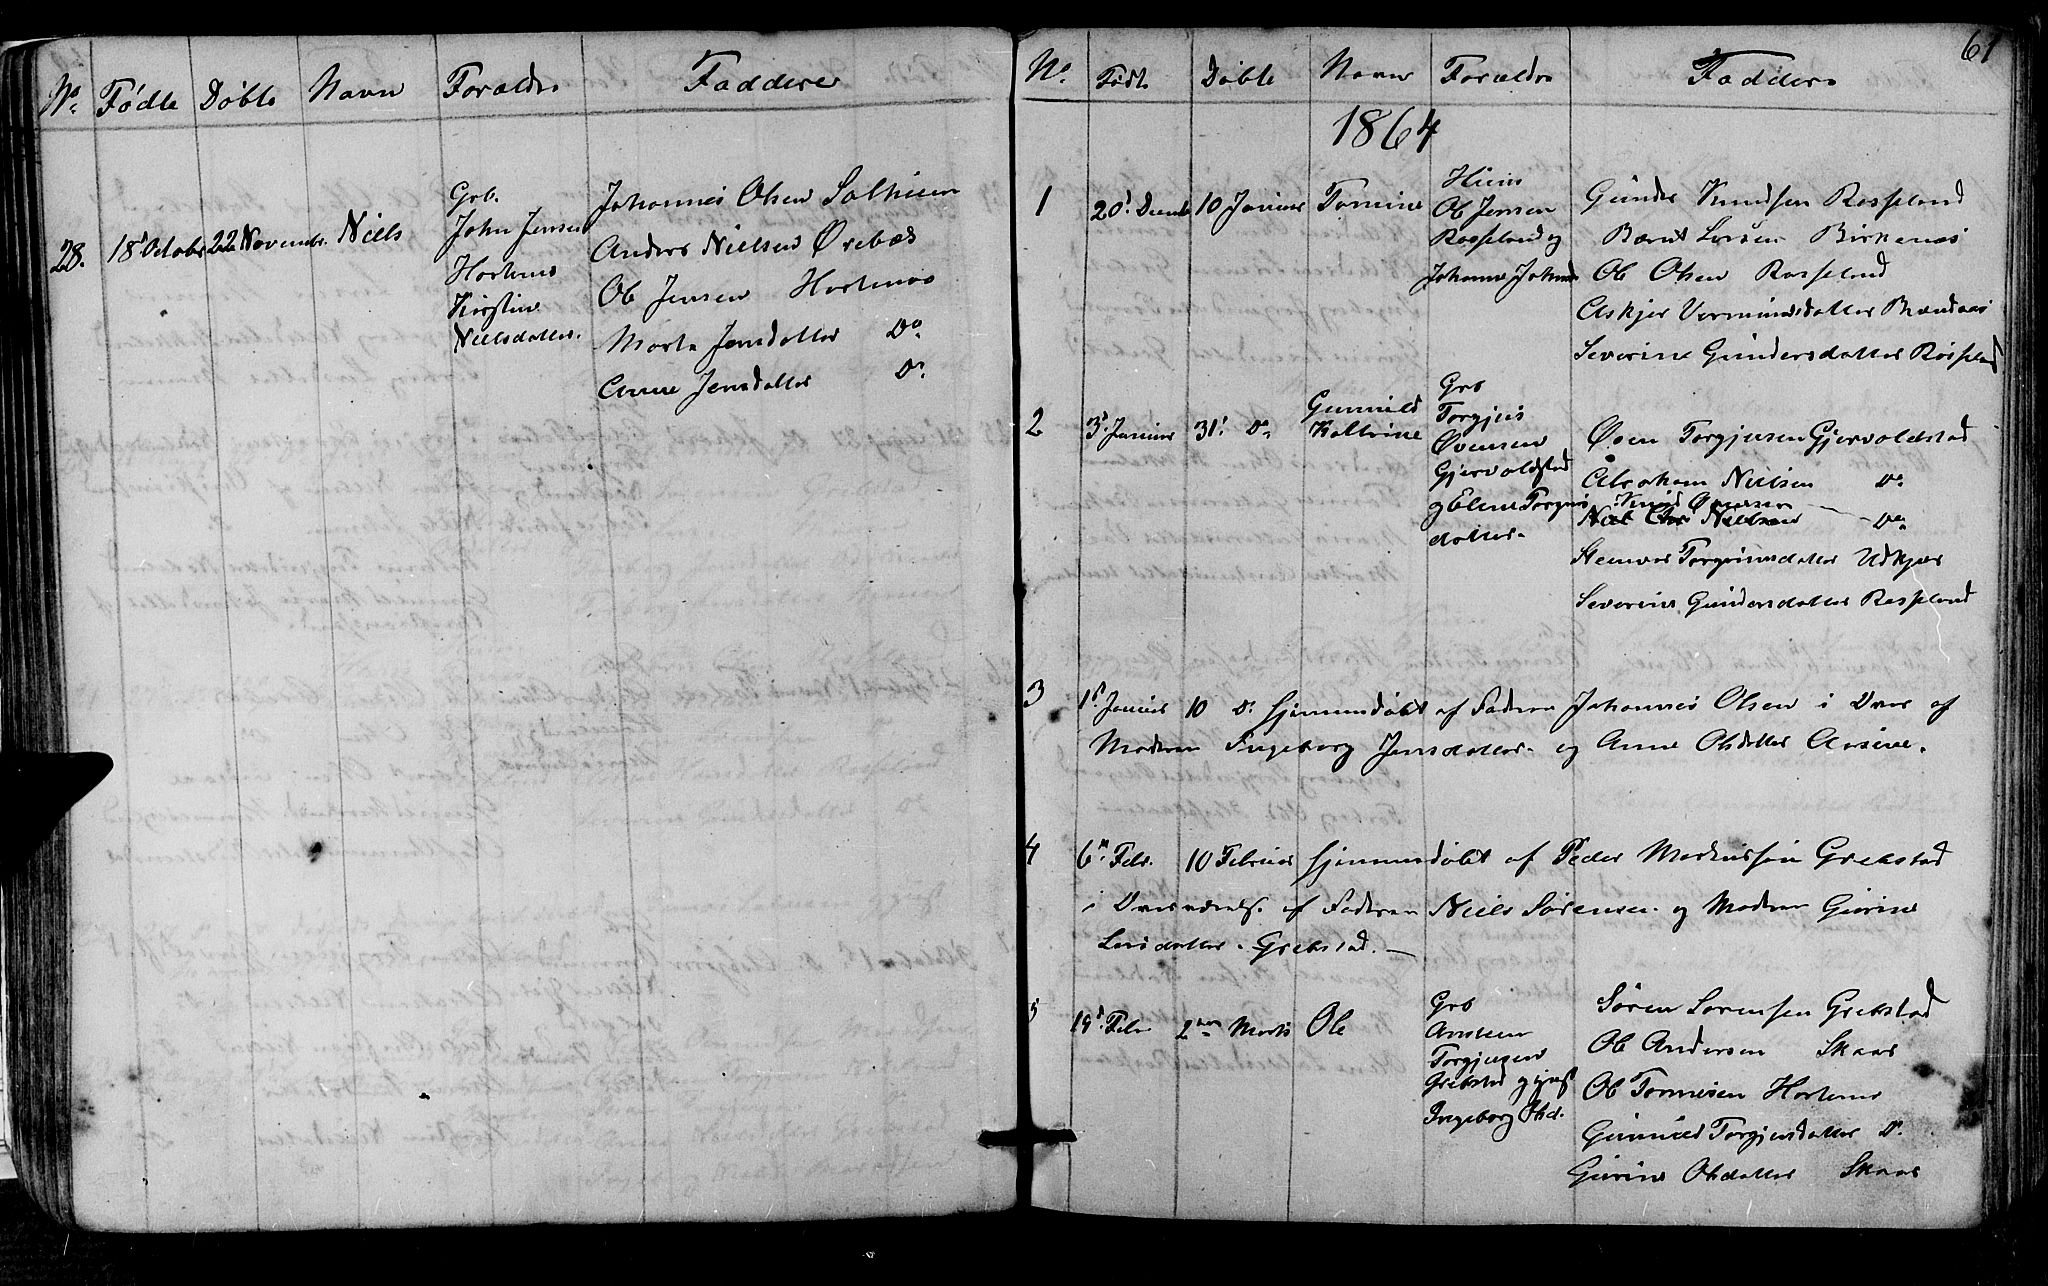 No. Fødte Døbte Navn Forældre Faddere
28. 18d Octobr 22de Novembr. Niels
Grb.
John Jensen
Hortenes
Kirstine
Nielsdatter.
Johannes Olsen Solheim
Anders Nielsen Ørebæk
Ole Jensen Hortenes
Marte Jensdatter Do
Anne Jensdatter Do
61
No. Født Døbte Navn Forældre Faddere
1864
1 20d Decembr 10 Januar Tomine
Huus
Ole Jensen
Rosseland og
Johanne Johnsd
Gunder Knudsen Rosseland
Bernt Larsen Birkenæs
Ole Olsen Rosseland
Askjer Vermundsdatter
Severine Gundersdatter Rosseland
2 3d Januar 31t Do Gunnild
Kathrine
Grb
Torgjus
Øvensen
Gjervoldstad
og Elene Torgrims
datter.
Øven Torgjusen Gjervoldstad
Abraham Nielsen Do
Knud Øvensen
Niels Chr Nielsen Do
Steinvor Torgrimsdatter Udkjær
Severine Gundersdatter Rosseland
3 1st Januar 10 Do hjemmedøbt af Faderen Johannes Olsen i Over af
Moderen Ingeborg Jensdatter og Anne Olsdatter
4 6te Febr. 10 Februar hjemmedøbt af Peder Grebstad
i Overværelse af Faderen Niels Sørensen og Moderen Gurine
Larsdatter Grebstad. —
5 19d Febr 2den Marts Ole
Grb
Torgjusen
Grebstad og
Ingeborg Olsd.
Søren Sørensen Grebstad
Ole Andersen Skaar
Ole Tomesen Hortenes
Gunnild Torgjusdatter Do
Gurine Olsdatter Skaar